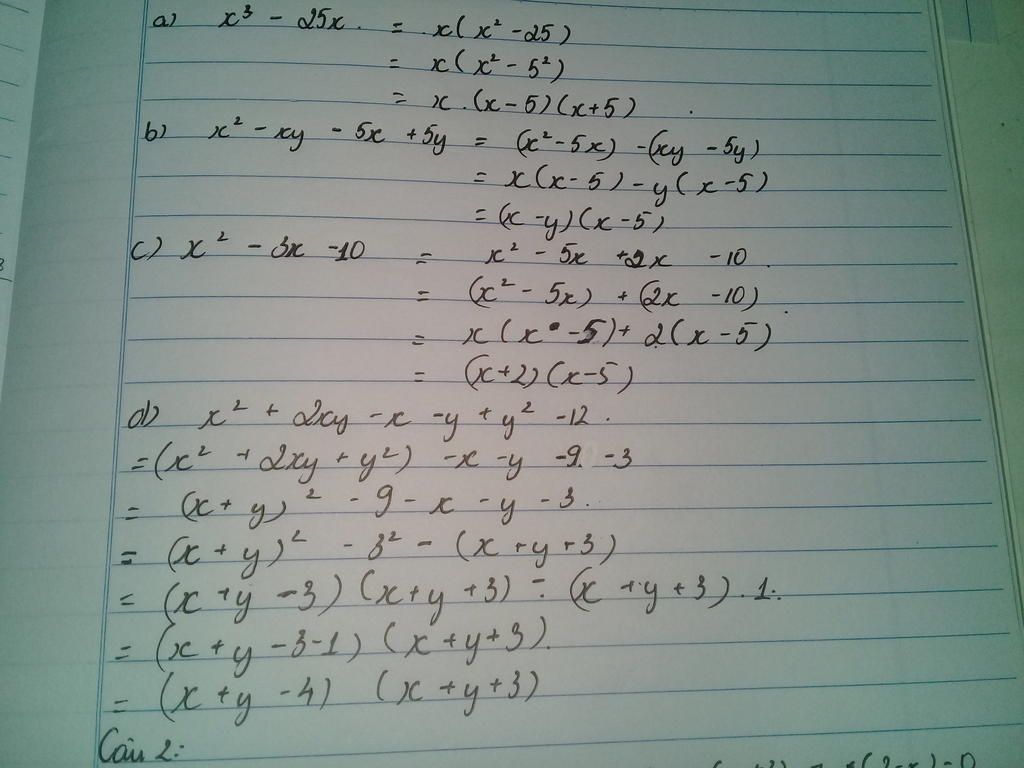 a) x³ - 25x = x(x² - 25)
= x(x² - 5²)
= x.(x - 5)(x + 5)
b) x² - xy - 5x + 5y = (x² - 5x) - (xy - 5y)
= x(x - 5) - y(x - 5)
= (x - y)(x - 5)
c) x² - 3x - 10 = x² - 5x + 2x - 10
= (x² - 5x) + (2x - 10)
= x(x - 5) + 2(x - 5)
= (x + 2)(x - 5)
d) x² + 2xy - x - y + y² - 12.
= (x² + 2xy + y²) - x - y - 9 - 3
= (x + y)² - 9 - x - y - 3.
= (x + y)² - 3² - (x + y + 3)
= (x + y - 3)(x + y + 3) - (x + y + 3).1.
= (x + y - 3 - 1)(x + y + 3).
= (x + y - 4)(x + y + 3)
Câu 2: